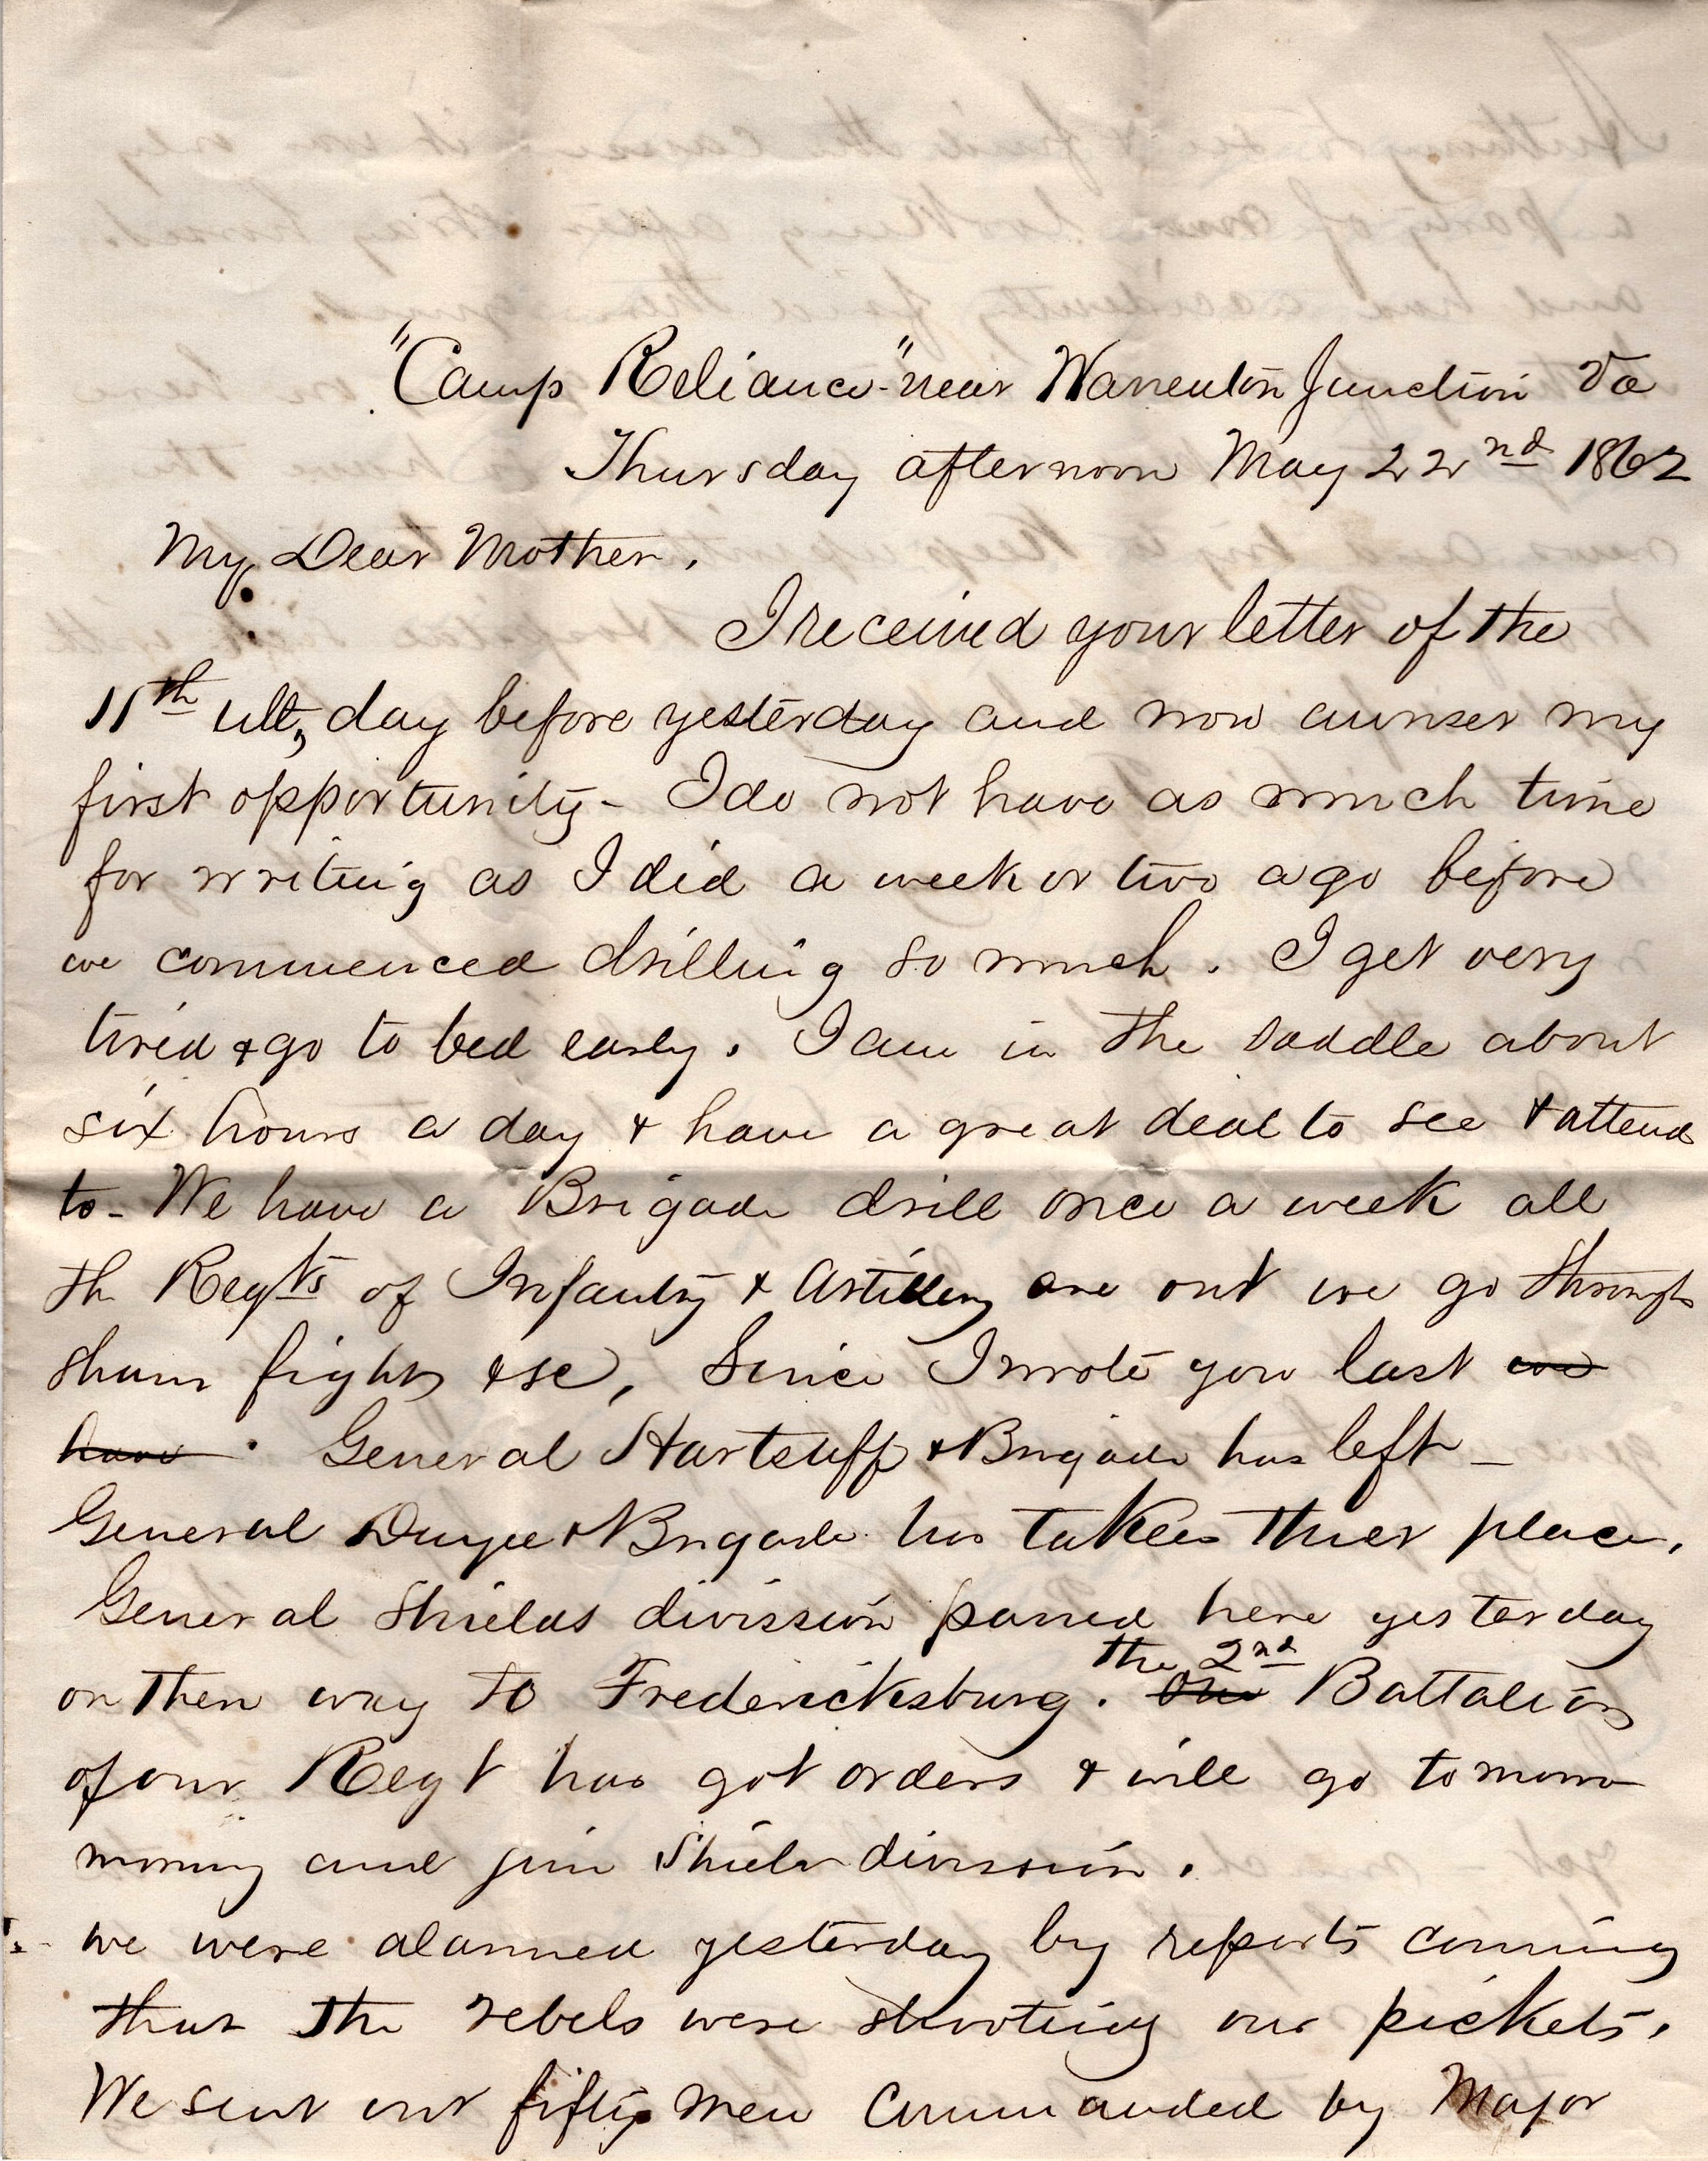 "Camp Reliance" near Warrenton Junction Va
Thursday afternoon May 22nd 1862
My Dear Mother,
I received your letter of the
11th ult, day before yesterday and now aunser my
first opportunity - I do not have as much time
for writing as I did a week or two ago before
we commenced drilling so much. I get very
tired & go to bed early. I am in the saddle about
six hours a day & have a great deal to see & attend
to - We have a Brigade drill once a week all
th Regts of Infantry & Artillery are out we go through
sham fights &c, Since I wrote you last we
have. General Hartsuff & Brigade has left -
General Duryee & Brigade has taken thier place,
General Shields division passed here yesterday
on their way to Fredericksburg. One the 2nd Battalion
of our Regt has got orders & will go tomorrow
morning and join Shields division.
we were alarmed yesterday by reports coming
that the rebels were shooting our pickets,
We sent out fifty men commanded by Major